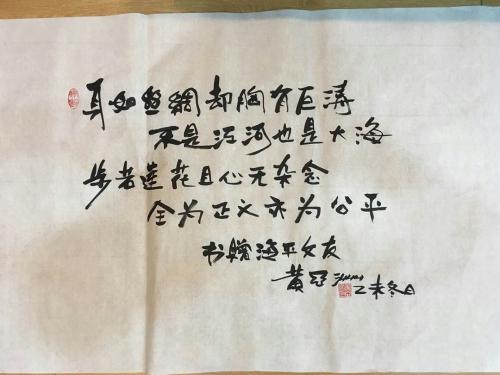 身如丝綢却胸有巨涛
不是江河也是大海
步若蓮花且心无杂念
全为正义亦为公平
书赠海平文友
黄 乙未冬日